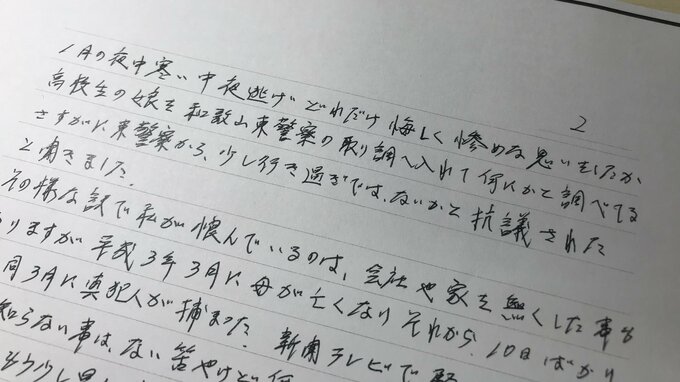 2
1月の夜中寒い中夜逃げどれだけ悔しく惨めな思いをしたか
高校生の娘を和歌山東警察の取り調べ入れて何にかと調べてる
さすがに東警察から、少し行き過ぎでは、ないかと抗議された
と聞きました。
その様な訳で私が恨んでいるのは、会社や家を無くした事も
りますが平成3年3月に母が亡くなりそれから、10日ばかり
同3月に真犯人が捕まった。新聞テレビで
知らない事は、ない筈やけど何